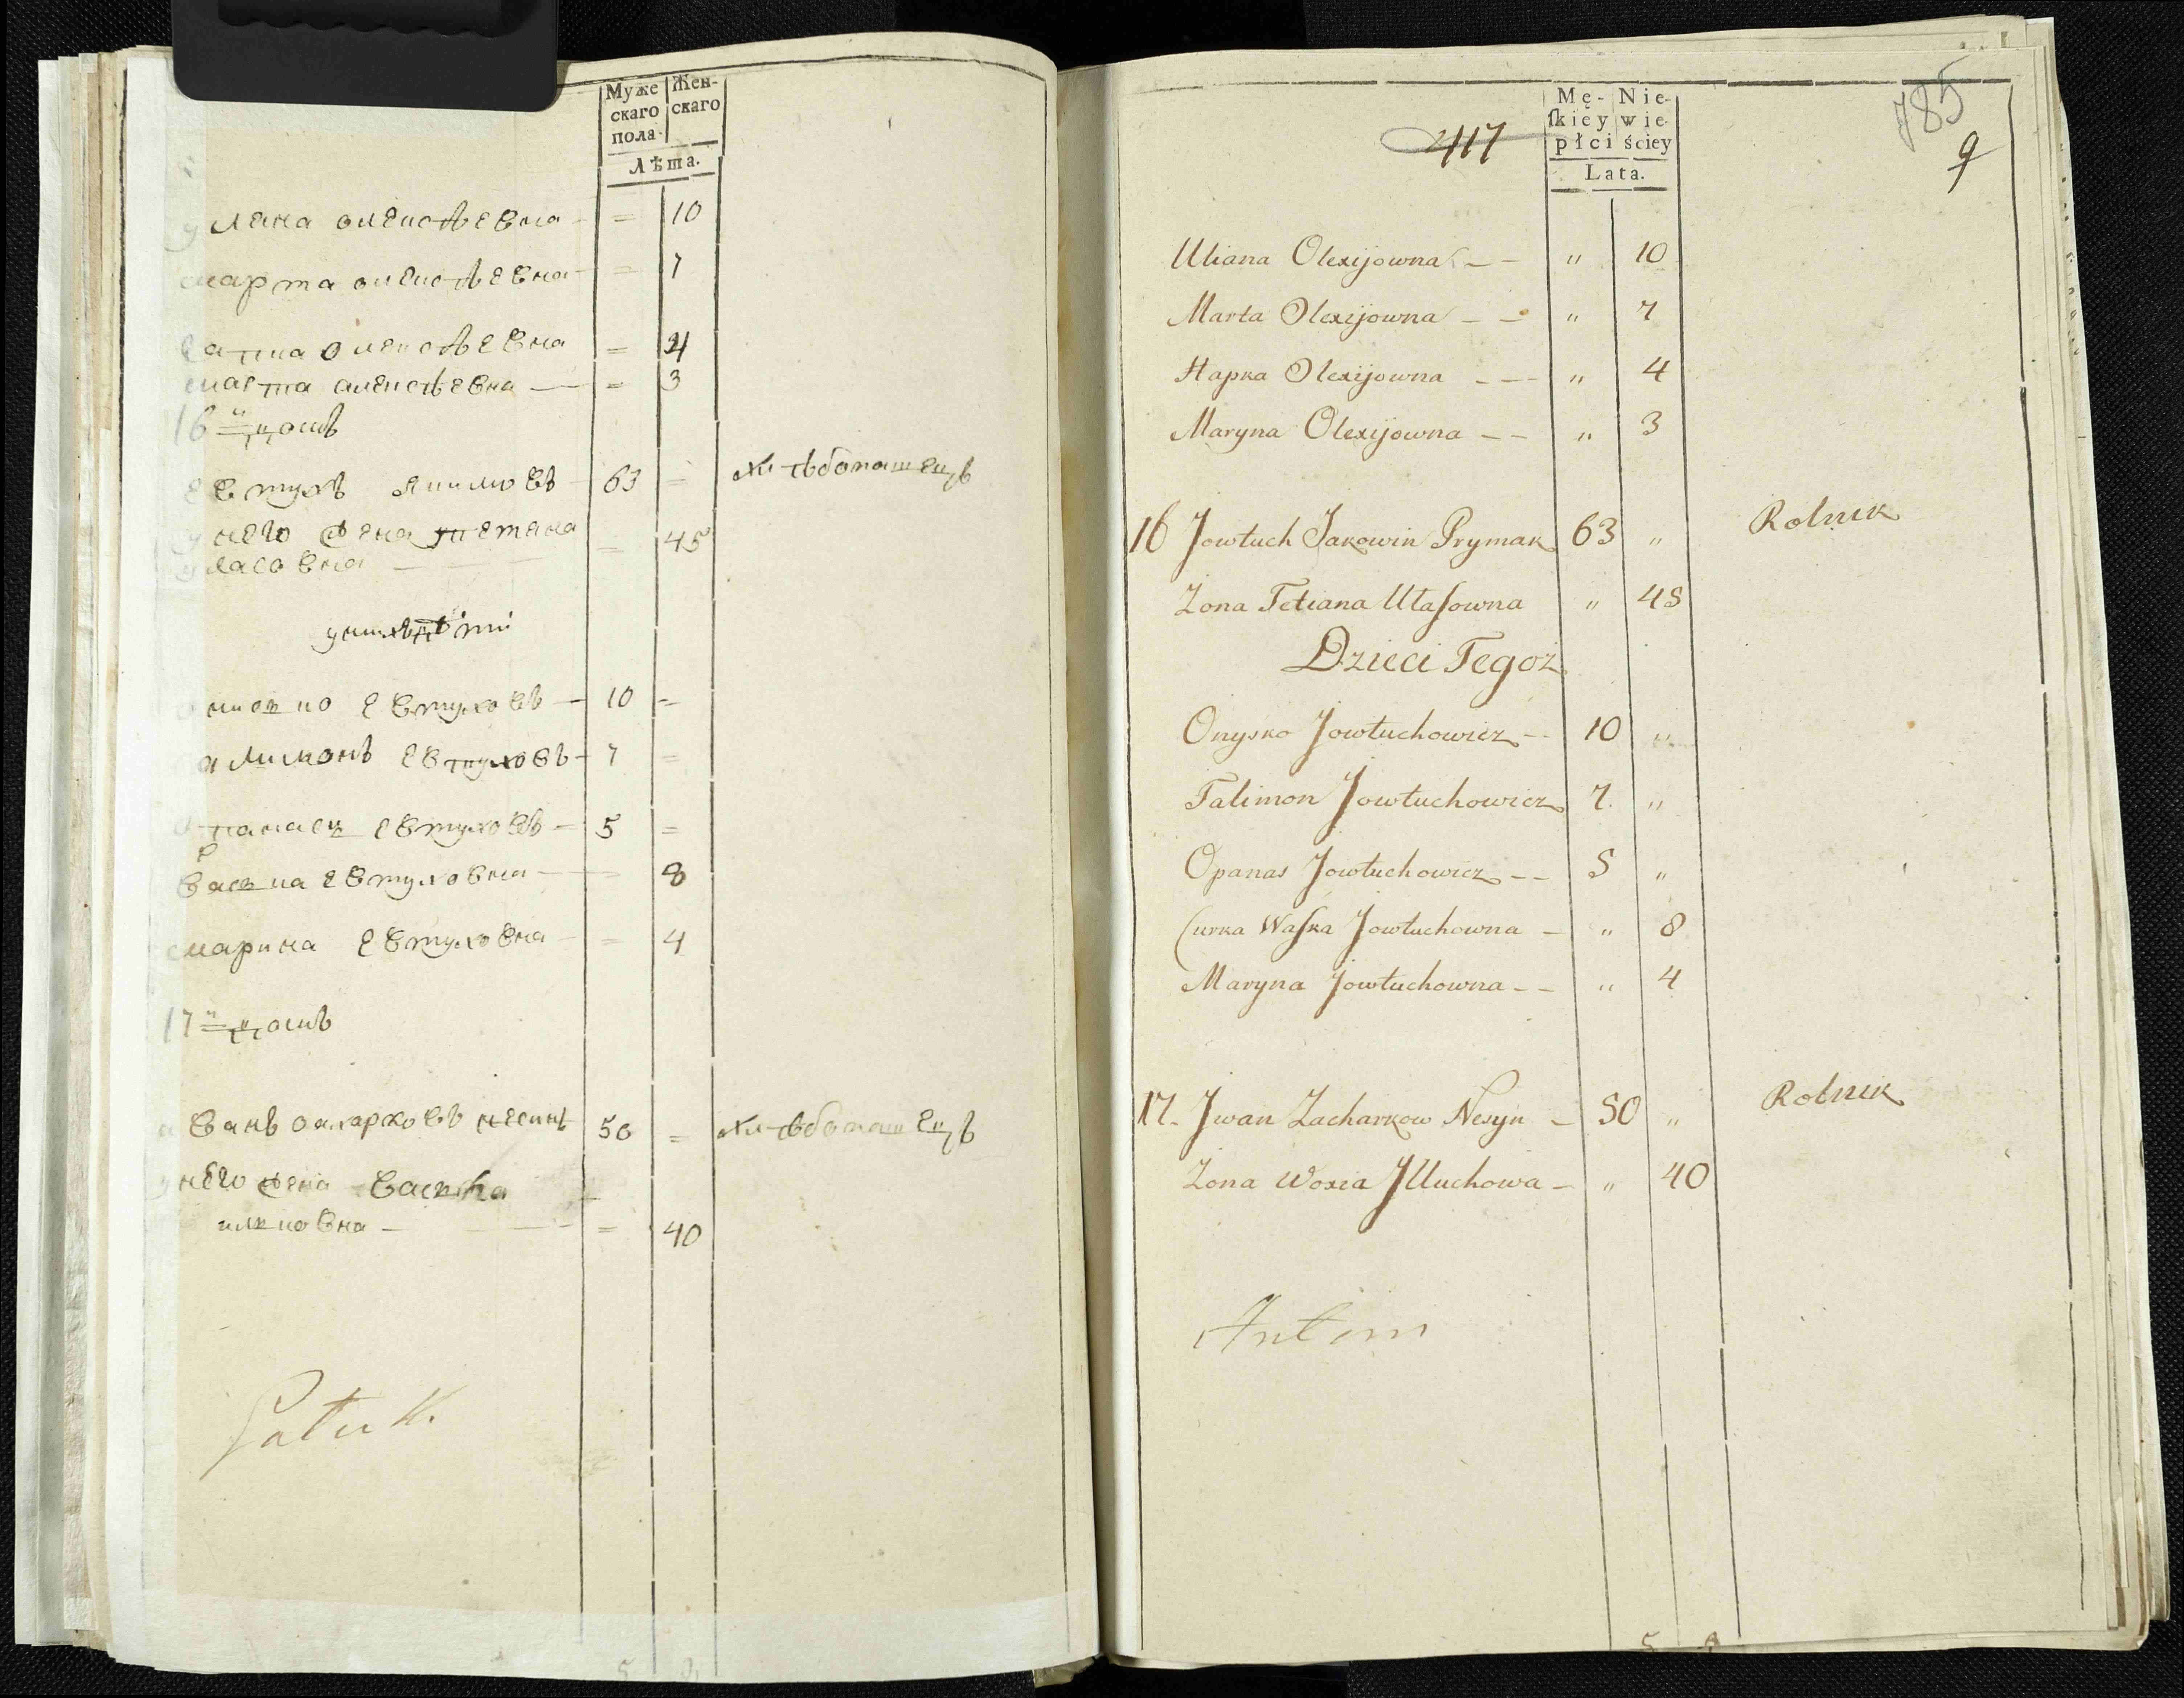 Муже
скаго
пола
Жен-
скаго
Лѣта.
уляна олексѣевна — = 10
марта олексѣевна — = 7
олексѣевна = 4
олексѣевна — = 3
16 й
евтухъ 63 = хлѣбопашецъ
у него жена тетяна = 45
уласовна —
у нихъ дѣти
ониско евтуховъ — 10 =
алимонъ евтуховъ — 7 =
опанасъ евтуховъ — 5 =
васка евтуховна — = 8
марина евтуховна — = 4
17 й
иванъ захарковъ несинъ 50 = хлѣбопашецъ
у него жена васка
илковна — = 40
417
785
9
Mę-
ſkiey
płci
Nie-
wie-
ściey
Lata.
Uliana Olexijowna — — " 10
Marta Olexijowna — — " 7
Hapka Olexijowna — — " 4
Maryna Olexijowna — — " 3
16 Jowtuch Jakowin Prymak 63 " Rolnik
Zona Tetiana Ułaſowna " 45
Dzieci Tegoż
Onysko Jowtuchowicz — 10 "
Talimon Jowtuchowicz 7. "
Opanas Jowtuchowicz — — 5 "
Curka Waſka Jowtuchowna — " 8
Maryna Jowtuchowna — — " 4
17. Jwan Zacharkow Nesyn — 50 " Rolnik
Zona Woxia Jlluchowa — " 40